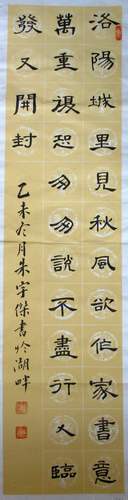 洛陽城里見秋風欲作家書意
萬重復恐匆匆說不盡行人臨
發又開封
乙未冬月朱宇傑書於湖畔